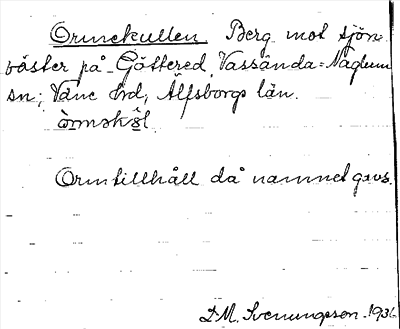 Ormekullen Berg mot sjön
väster på Gåttered, Vassända=Naglum
sn; Väne hrd; Älfsborgs län.
òrməkùl
Ormtillhåll då namnet gavs.
D.M. Svenungsson. 1936